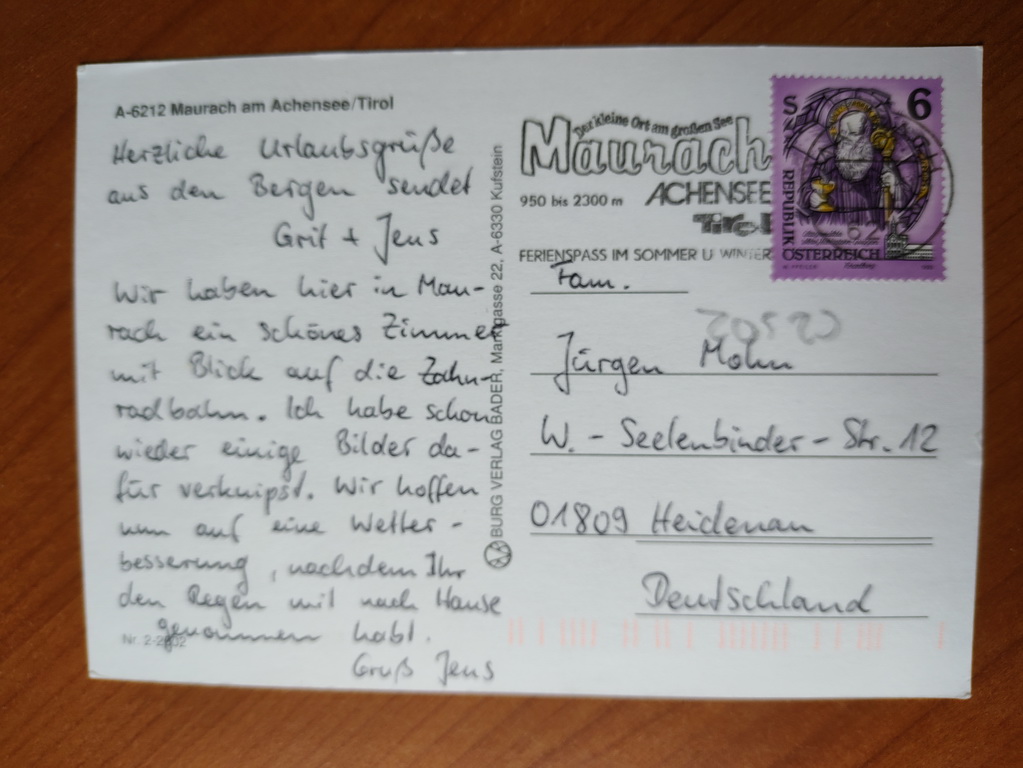 A-6212 Maurach am Achensee/Tirol
Herzliche Urlaubsgrüße
aus den Bergen sendet
Grit + Jens
Wir haben hier in Mau-
rach ein schönes Zimmer
mit Blick auf die Zahn-
radbahn. Ich habe schon
wieder einige Bilder da-
für verknipst. Wir hoffen
nun auf eine Wetter-
besserung, nachdem Ihr
den Regen mit nach Hause
genommen habt.
Gruß Jens
Nr. 2-2
BURG VERLAG BADER, Marktgasse 22, A-6330 Kufstein
Der kleine Ort am großen See
Maurach
950 bis 2300 m ACHENSEE
Tirol
FERIENSPASS IM SOMMER U WINTER
S 6
REPUBLIK
ÖSTERREICH
62
Fam.
Jürgen Mohn
W. - Seelenbinder - Str. 12
01809 Heidenau
Deutschland